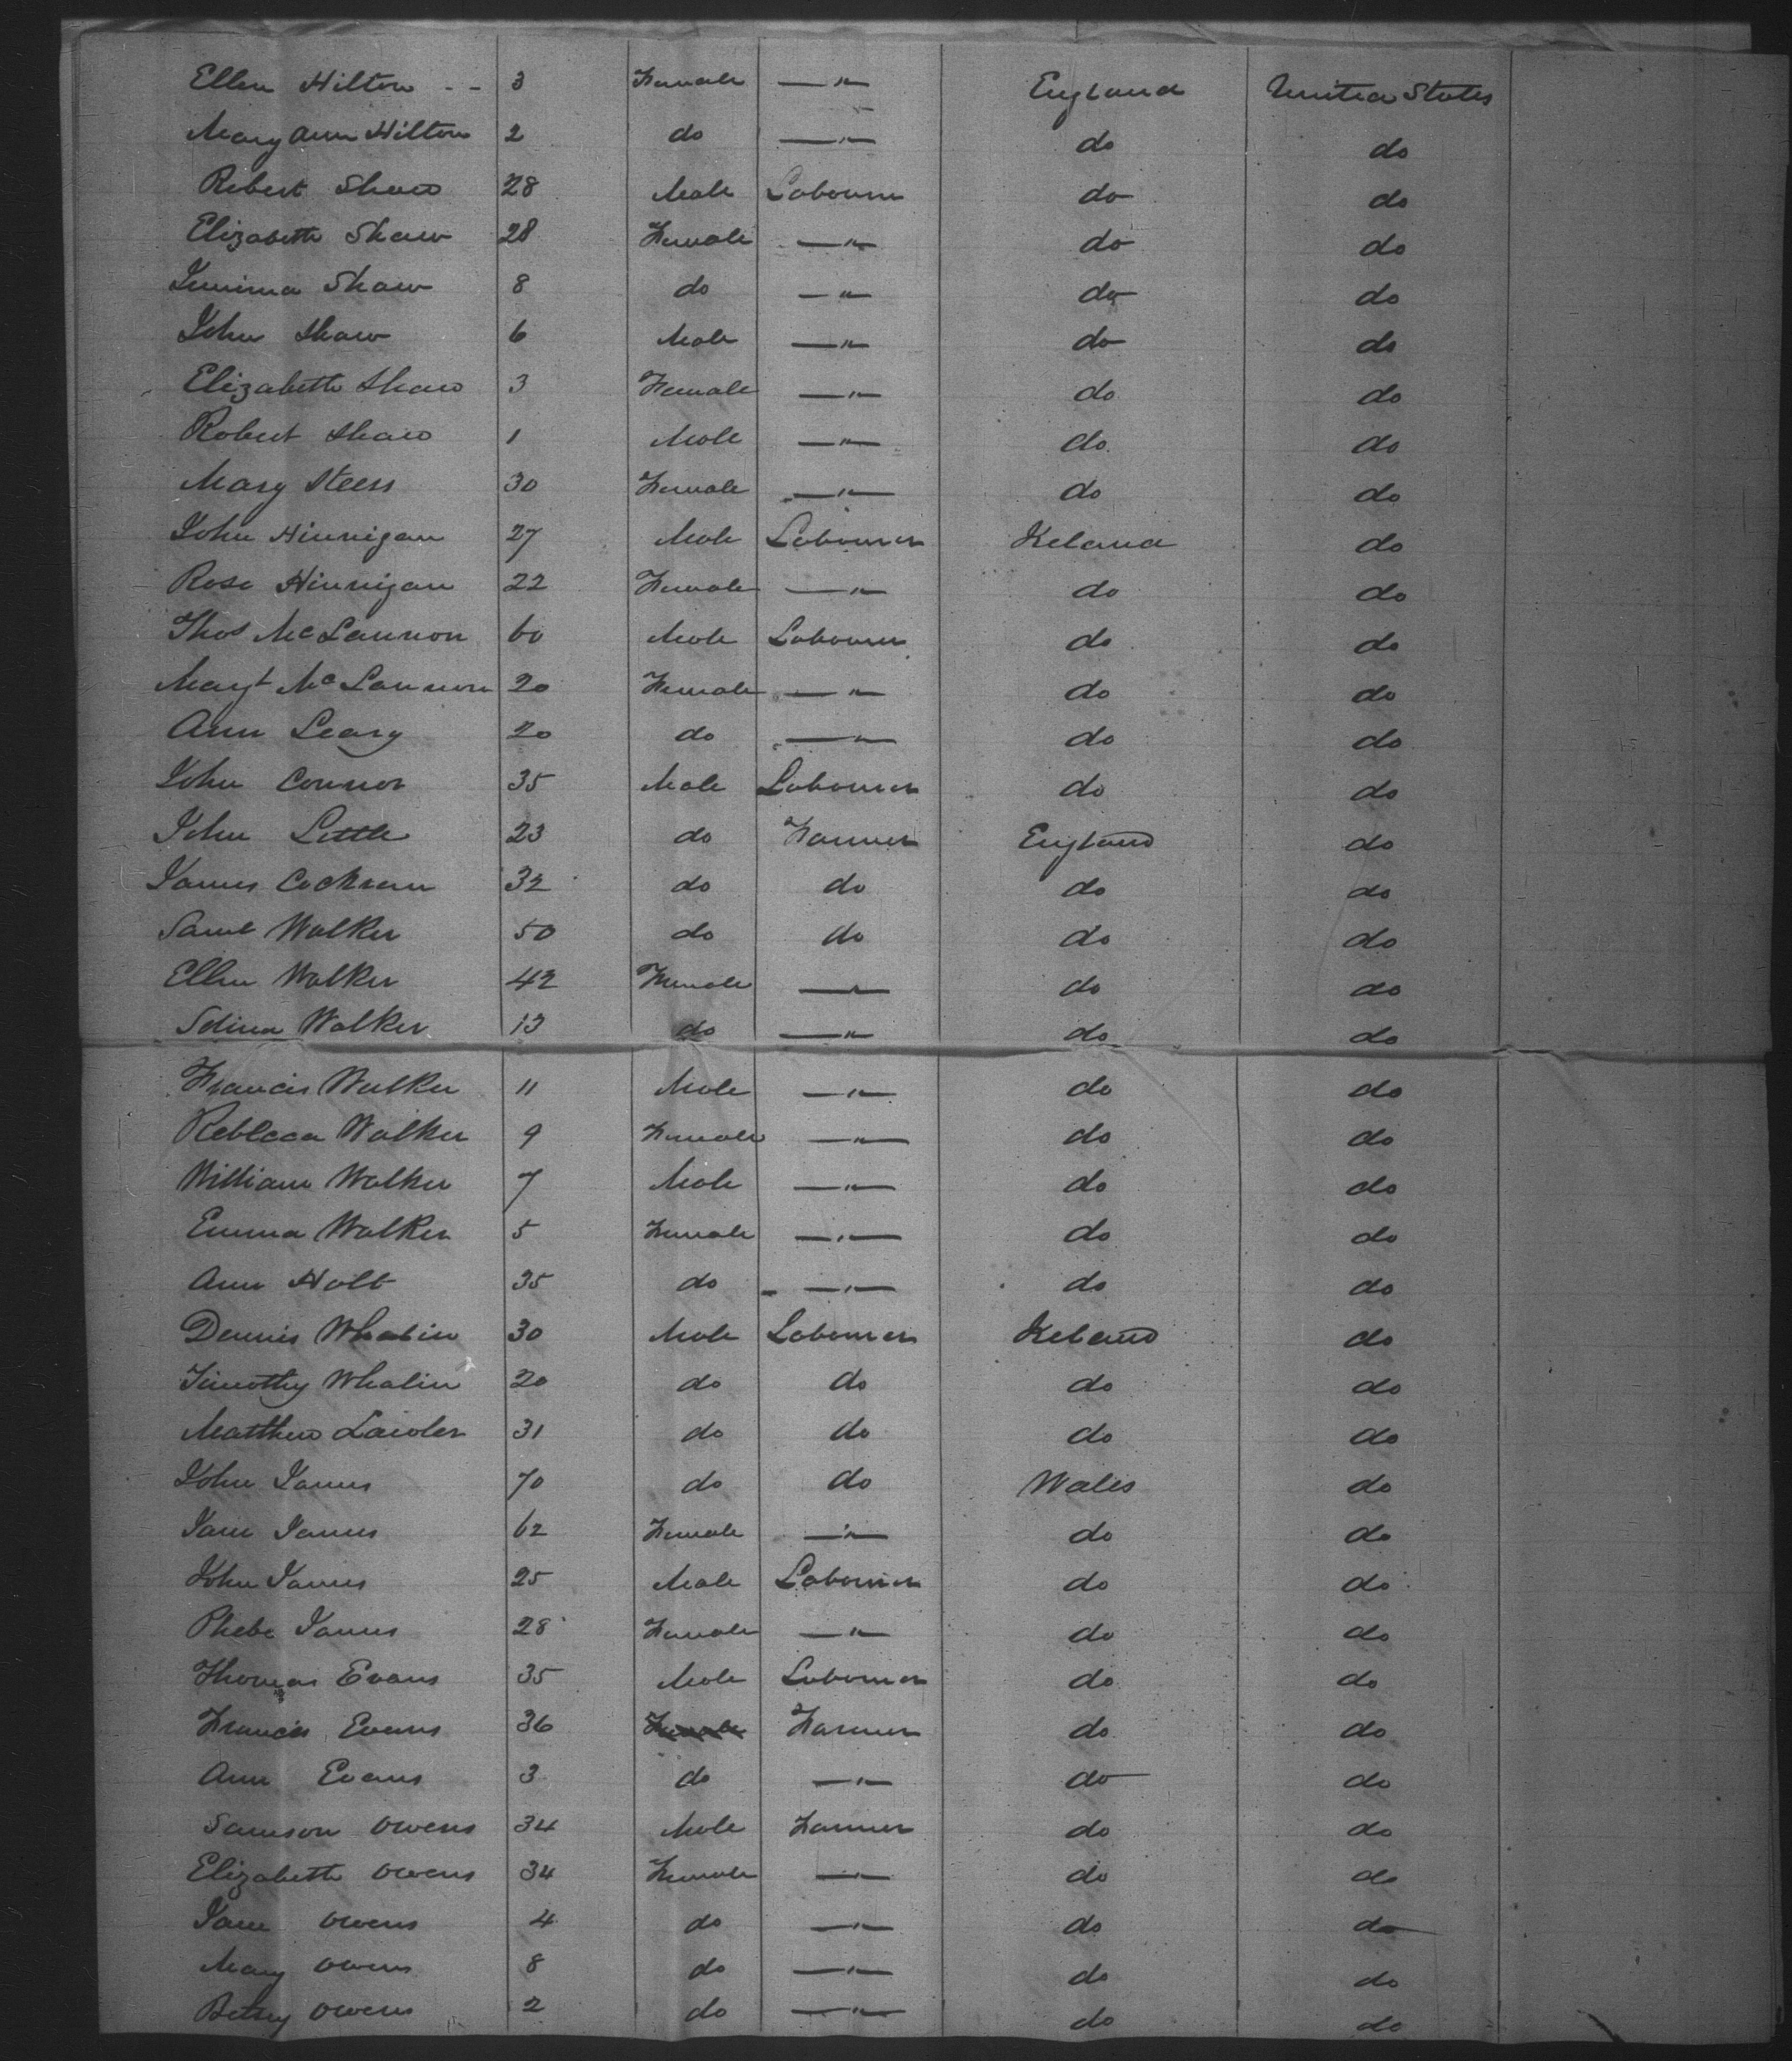 Ellen Hilton - - 3 Female —"— England United States
Mary Ann Hilton 2 do —"— do do
Robert Shaw 28 Male Labourer do do
Elizabeth Shaw 28 Female —"— do do
Jemima Shaw 8 do —"— do do
John Shaw 6 Male —"— do do
Elizabeth Shaw 3 Female —"— do do
Robert Shaw 1 Male —"— do do
Mary Steers 30 Female —"— do do
John Hinnigan 27 Male Labourer Ireland do
Rose Hinnigan 22 Female —"— do do
Thos McLannon 60 Male Labourer do do
Margt McLannon 20 Female —"— do do
Ann Leary 20 do —"— do do
John Connor 35 Male Labourer do do
John Little 23 do Farmer England do
James Cochram 32 do do do do
Saml Walker 50 do do do do
Ellen Walker 42 Female —"— do do
Selina Walker 13 do —"— do do
Francis Walker 11 Male —"— do do
Rebecca Walker 9 Female —"— do do
William Walker 7 Male —"— do do
Emma Walker 5 Female —"— do do
Ann Holt 35 do —"— do do
Dennis Whalin 30 Male Labourer Ireland do
Timothy Whalin 20 do do do do
Matthew Lawler 31 do do do do
John James 70 do do Wales do
Jane James 62 Female —"— do do
John James 25 Male Labourer do do
Phebe James 28 Female —"— do do
Thomas Evans 35 Male Labourer do do
Francis Evans 36 Female Farmer do do
Ann Evans 3 do —"— do do
Samson Owens 34 Male Farmer do do
Elizabeth Owens 34 Female —"— do do
Jane Owens 4 do —"— do do
Mary Owens 8 do —"— do do
Betsy Owens 2 do —"— do do